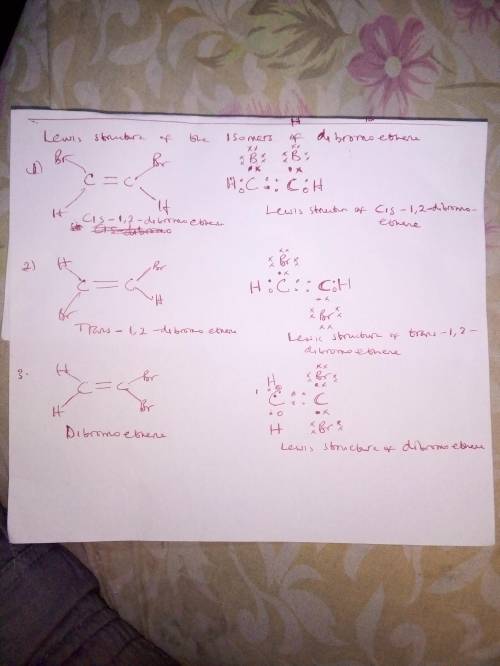 Lewis structure of the Isomers of dibromoethene
1)
Br Br
C = C
H H
Cis-1,2-dibromoethene
B B
H C :: C H
Lewis structure of Cis-1,2-dibromo-
ethene
2)
H Br
C = C
Br H
Trans-1,2-dibromoethene
Br
H C :: C H
Br
Lewis structure of trans-1,2-
dibromoethene
3.
H Br
C = C
H Br
Dibromoethene
H Br
C :: C
H Br
Lewis structure of dibromoethene